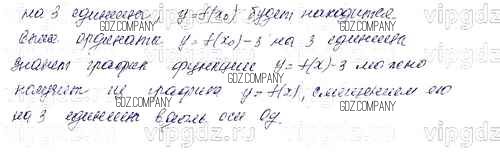 на 3 единицы, y=f(x₀) будет находится
выше ординаты y=f(x₀)-3 на 3 единицы
значит график функции y=f(x)-3 можно
получить из графика y=f(x), смещением его
на 3 единицы вдоль оси Oy.
GDZ.COMPANY
vipgdz.ru